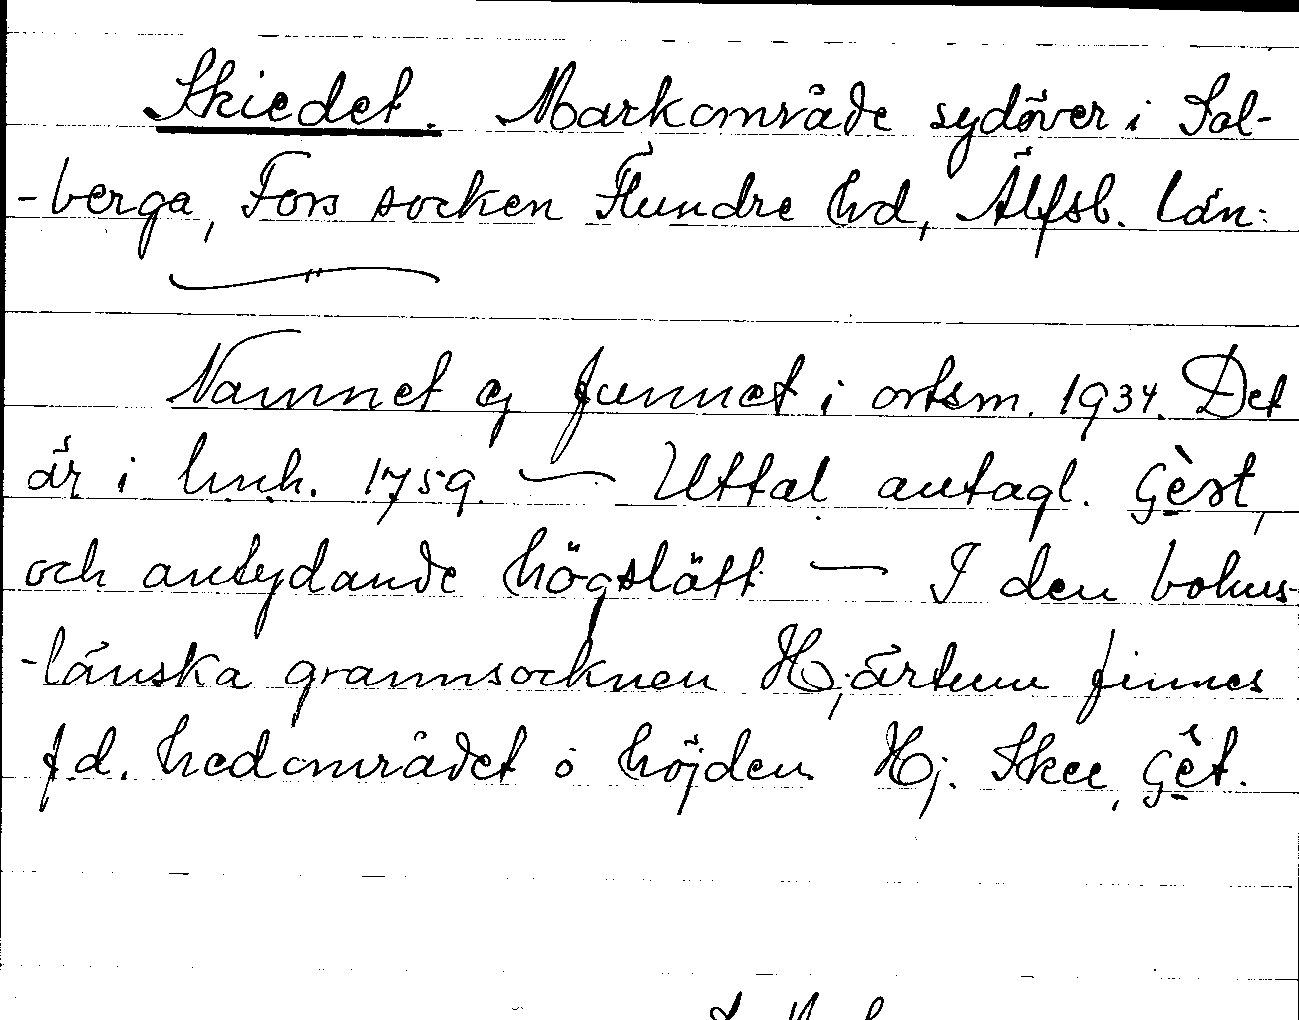 Skiedet. Markområde sydöver i Sol-
-berga, Fors socken Flundre hd, Älfsb. län.
Namnet ej funnet i ortsm. 1934. Det
är i lm.h. 1759. — Uttal antagl.
och antydande högslätt — I den bohus-
-länska grannsocknen Hjärtum finnes
f.d. hedområdet å höjden Hj. Skee,